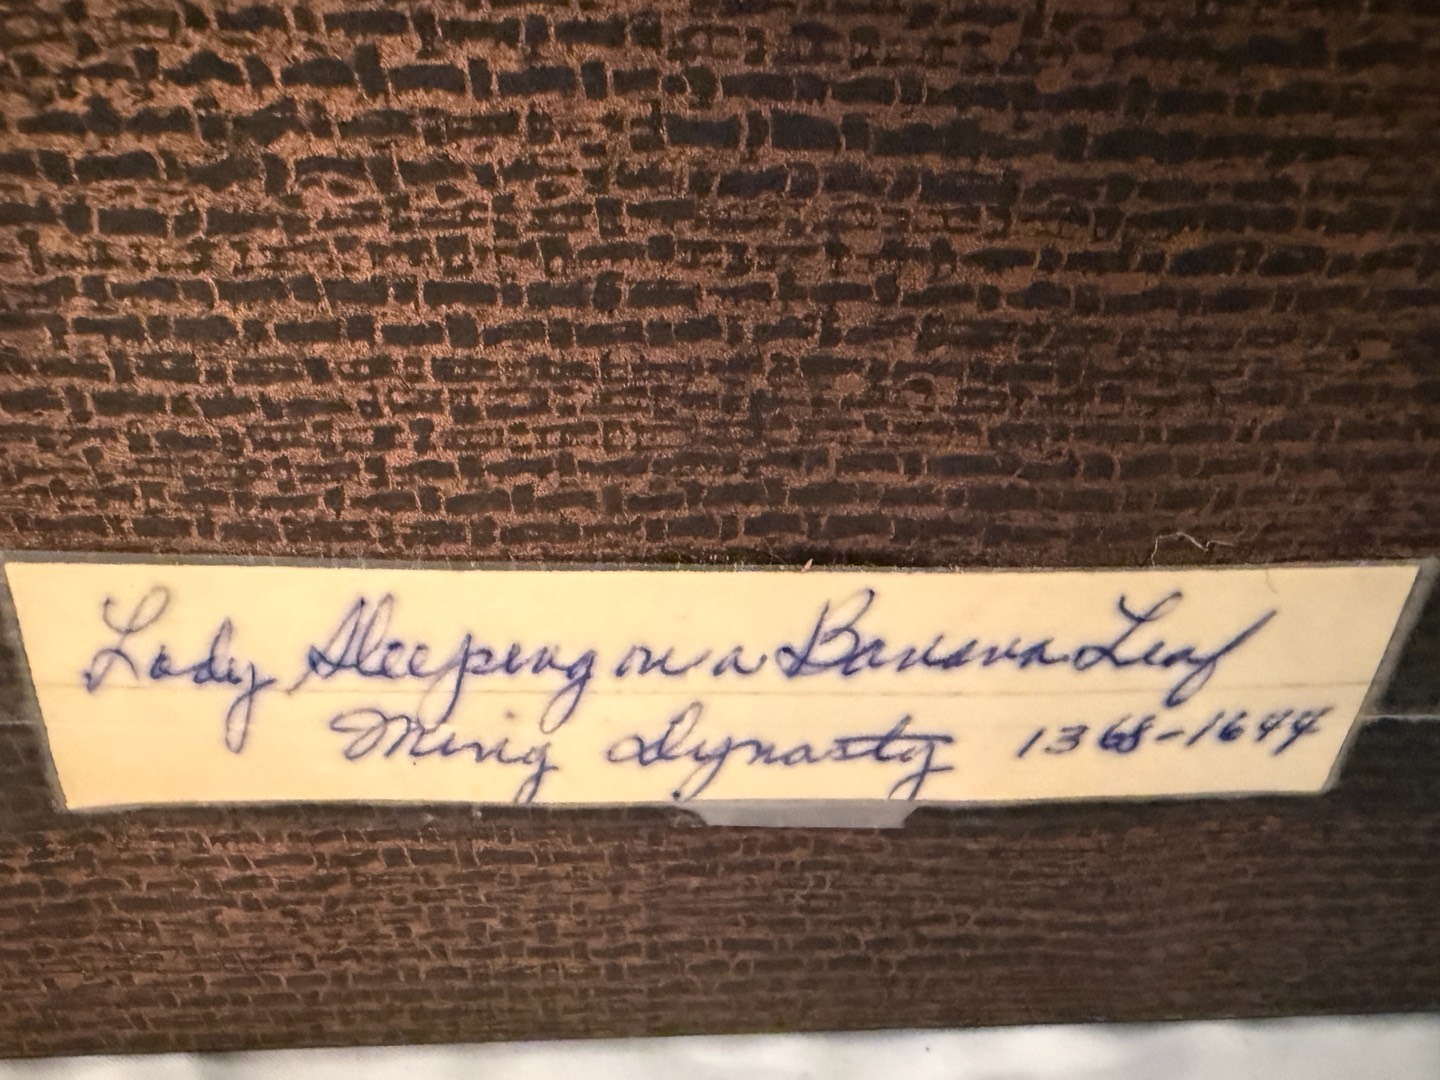 Lady Sleeping on a Banana Leaf
Ming Dynasty 1368-1644